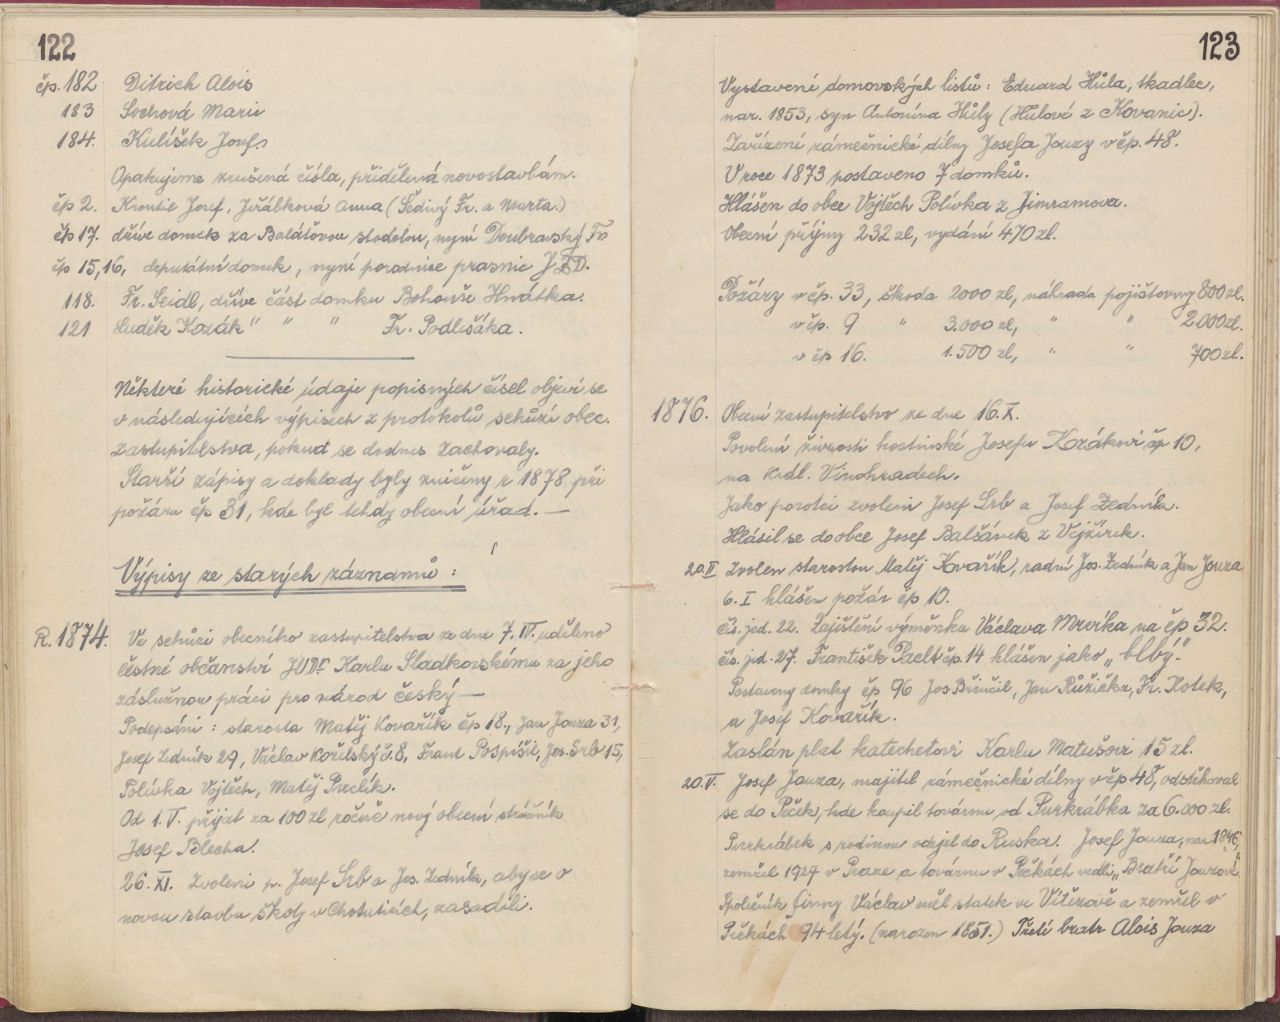 122
čp. 182 Ditrich Alois
183 Sochová Marie
184. Kulíšek Josef
Opakujeme zrušená čísla, přidělená novostavbám.
čp 2. Josef, Jeřábková Anna (Šedivý Fr. a Marta.)
čp 17. dříve domek za Balášovou stodolou, nyní Doubravský Fr.
čp 15,16, deputátní domek, nyní porodnice prasnic JZD.
118. Fr. Seidl, dříve část domku Bohouše Hnátka.
121 Luděk Kozák " " " Fr. Podlešáka.
Některé historické údaje popisných čísel objeví se
v následujících výpisech z protokolů schůzí obec.
zastupitelstva, pokud se dodnes zachovaly.
Starší zápisy a doklady byly zničeny r 1878 při
požáru čp 31, kde byl tehdy obecní úřad. —
Výpisy ze starých záznamů :
R. 1874. Ve schůzi obecního zastupitelstva ze dne 7. IV. uděleno
čestné občanství JUDr Karlu Sladkovskému za jeho
záslužnou práci pro národ český —
Podepsáni : starosta Matěj Kovařík čp 18., Jan Jouza 31,
Josef Zedník 29, Václav Kořelský č. 8, Frant Pospíšil, Jos. Srb 15,
Polívka Vojtěch, Matěj Preclík.
Od 1. V. přijat za 100 zl ročně nový obecní strážník
Josef Blecha.
26. XI. Zvoleni p. Josef Srb a Jos. Zedník, aby se o
novou stavbu školy v Chotuticích, zasadili.
123
Vystavení domovských listů : Eduard Hůla, tkadlec,
nar. 1853, syn Antonína Hůly (Hůlové z Kovanic).
Zařízení zámečnické dílny Josefa Jouzy v čp. 48.
V roce 1873 postaveno 7 domků.
Hlášen do obce Vojtěch Polívka z Jimramova.
Obecní příjmy 232 zl, vydání 470 zl.
Požáry v čp. 33, škoda 2000 zl, náhrada pojišťovny 800 zl.
v čp. 9 " 3.000 zl, " " 2000 zl.
v čp 16. 1.500 zl, " " 700 zl.
1876. Obecní zastupitelstvo ze dne 16. X.
Povolení živnosti hostinské Josefu Kozákovi čp 10,
na Král. Vinohradech.
Jako porotci zvoleni Josef Srb a Josef Zedník.
Hlásil se do obce Josef Balšánek z Vejžírek.
20. II Zvolen starostou Matěj Kovařík, radní Jos. Zedník a Jan Jouza
6. I hlášen požár čp 10.
čís. jed. 22. Zajištění výměnku Václava Mrvíka na čp 32.
čís. jed. 27. František Paclt čp. 14 hlášen jako „blbý."
Postaveny domky čp 96 Jos. Jan Růžička, Fr. Kotek,
a Josef Kovařík.
Zaslán plat katechetovi Karlu Matušovi 15 zl.
20. V. Josef Jouza, majitel zámečnické dílny v čp 48, odstěhoval
se do Peček, kde koupil továrnu od Purkrábka za 6.000 zl.
Purkrábek s rodinou odejel do Ruska. Josef Jouza, nar. 1846,
zemřel 1927 v Praze a továrnu v Pečkách vedli „Bratří Jouzové"
Společník firmy Václav měl statek ve Vitězově a zemřel v
Pečkách 94 letý. (narozen 1851.) Třetí bratr Alois Jouza